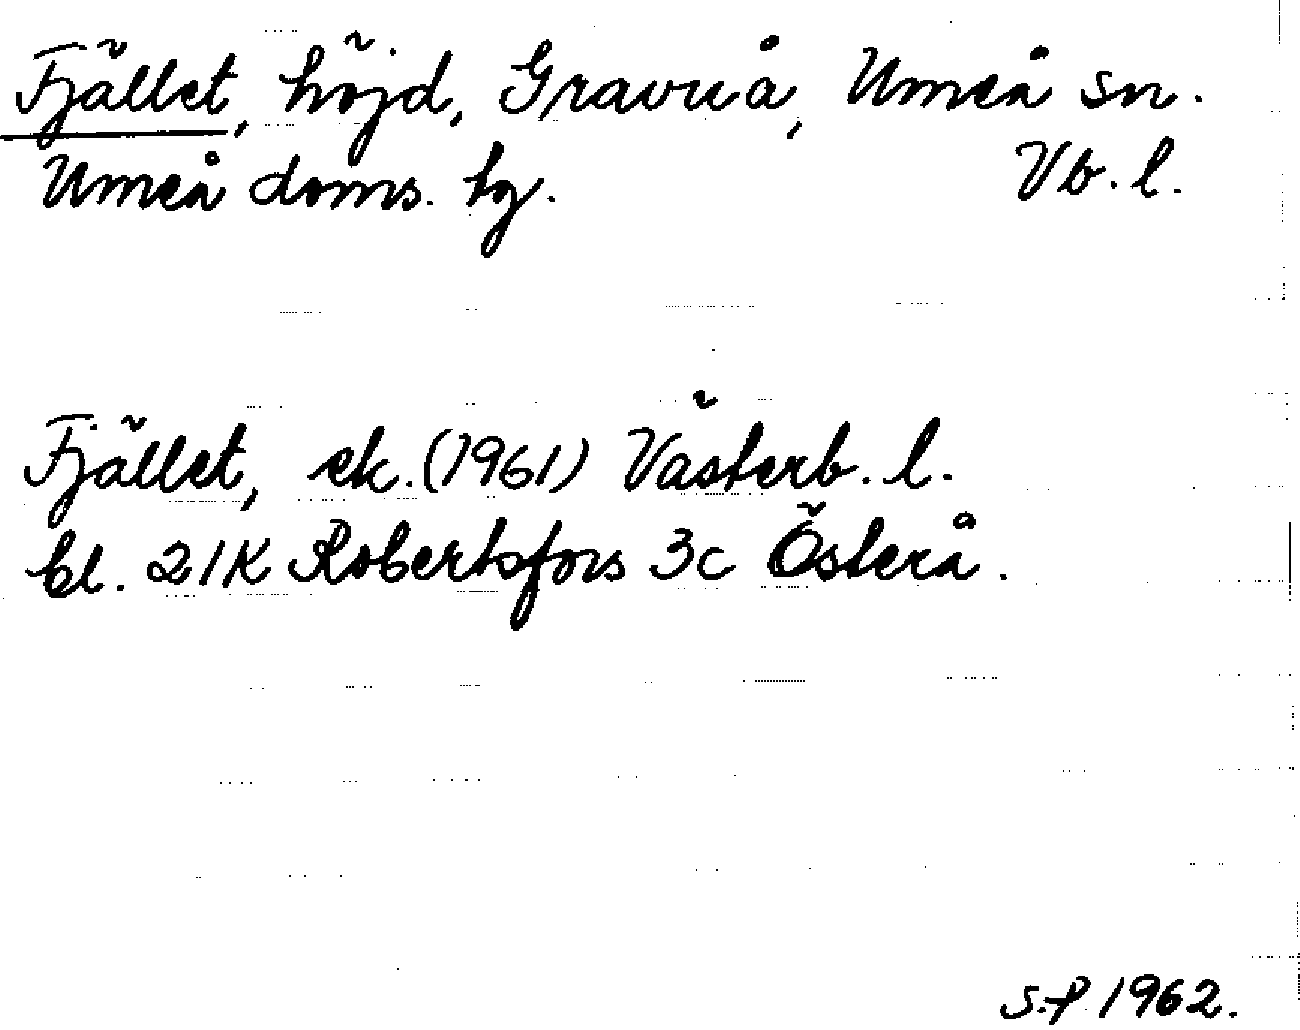 Fjället, höjd, Gravuå, Umeå sn.
Umeå doms. tg. Vb. l.
Fjället, ek. (1961) Västerb. l.
bl. 21K Robertsfors 3c Österå.
S.P 1962.